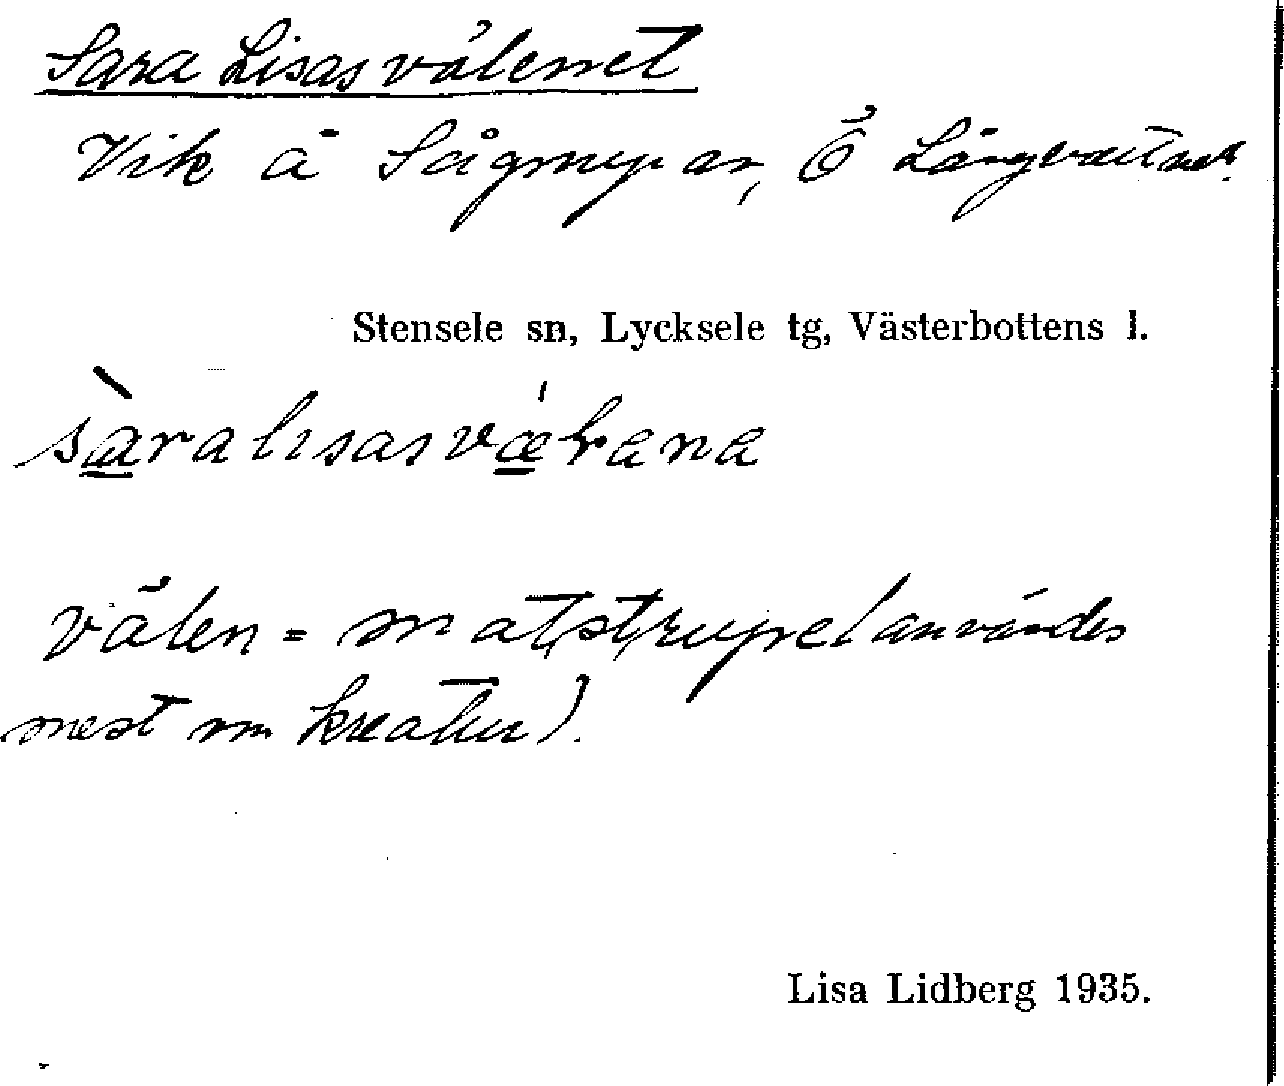 Sara Lisasvälenet
Vik å Sågmyran, Ö Långvattnet.
Stensele sn, Lycksele tg, Västerbottens l.
välen = matstrupe (användes
mest om kreatur).
Lisa Lidberg 1935.